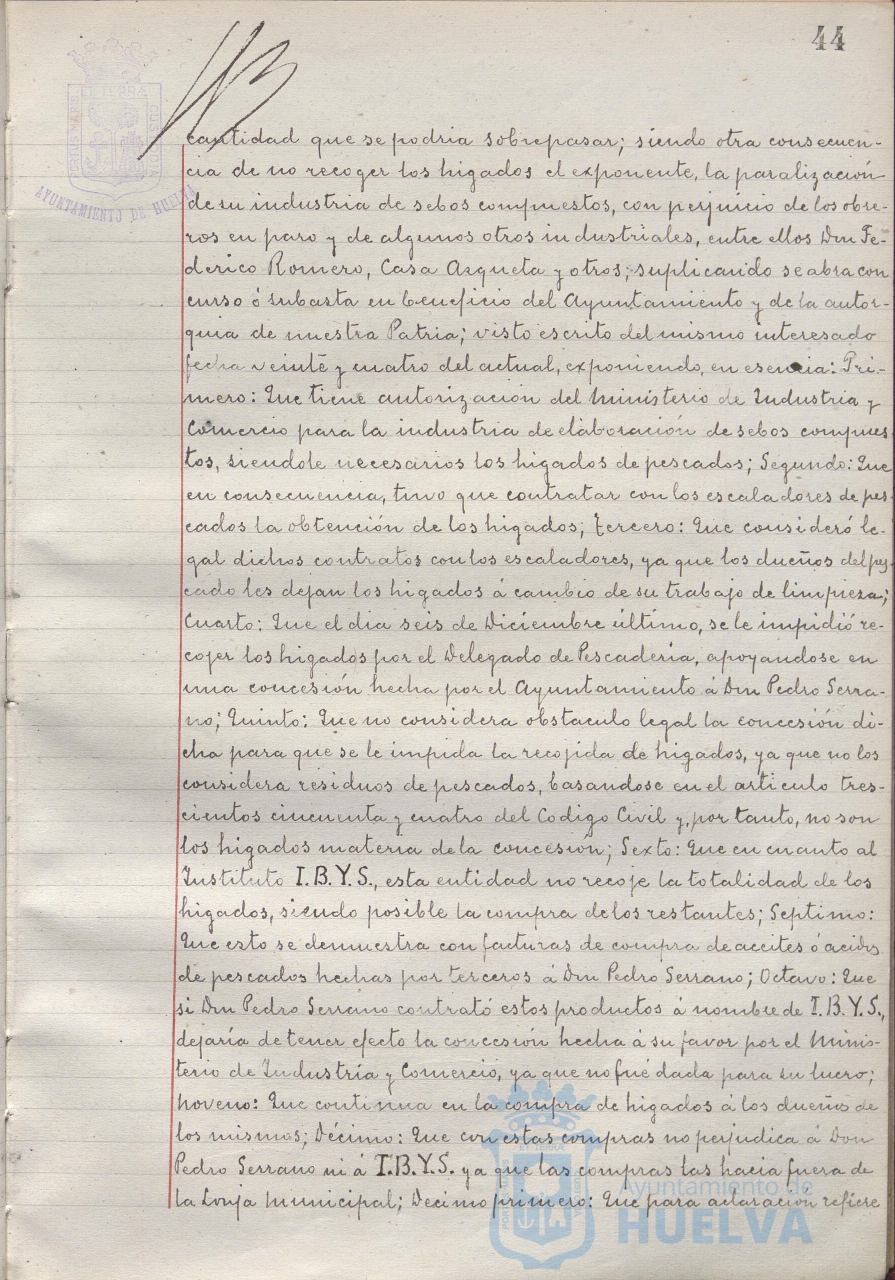 44
AYUNTAMIENTO DE HUELVA
cantidad que se podria sobrepasar; siendo otra consecuen-
cia de no recoger los higados el exponente, la paralización
de su industria de sebos compuestos, con perjuicio de los obre-
ros en paro y de algunos otros industriales, entre ellos Don Fe-
derico Romero, Casa Azqueta y otros; suplicando se abra con
curso ó subasta en beneficio del Ayuntamiento y de la autor-
quia de nuestra Patria; visto escrito del mismo interesado
fecha veinte y cuatro del actual, exponiendo, en esencia: Pri-
mero: Que tiene autorización del Ministerio de Industria y
Comercio para la industria de elaboración de sebos compues-
tos, siendole necesarios los higados de pescados; Segundo: Que
en consecuencia, tuvo que contratar con los escaladores de pes-
cados la obtención de los higados; tercero: Que consideró le-
gal dichos contratos con los escaladores, ya que los dueños del pes-
cado les dejan los higados á cambio de su trabajo de limpieza;
Cuarto: Que el dia seis de Diciembre último, se le impidió re-
cojer los higados por el Delegado de Pescaderia, apoyandose en
una concesión hecha por el Ayuntamiento á Don Pedro Serra-
no; Quinto: Que no considera obstaculo legal la concesión di-
cha para que se le impida la recojida de higados, ya que no los
considera residuos de pescados, basandose en el articulo tres-
cientos cincuenta y cuatro del Codigo Civil y, por tanto, no son
los higados materia de la concesión; Sexto: Que en cuanto al
Instituto I.B.Y.S., esta entidad no recoje la totalidad de los
higados, siendo posible la compra de los restantes; Septimo:
Que esto se demuestra con facturas de compra de aceites ó acidos
de pescados hechas por terceros á Don Pedro Serrano; Octavo: Que
si Don Pedro Serrano contrató estos productos á nombre de I.B.Y.S.,
dejaría de tener efecto la concesión hecha á su favor por el Minis-
terio de Industria y Comercio, ya que no fué dada para su lucro;
Noveno: Que continua en la compra de higados á los dueños de
los mismos; Décimo: Que con estas compras no perjudica á Don
Pedro Serrano ni á I.B.Y.S. ya que las compras las hacia fuera de
la Lonja Municipal; Decimo primero: Que para aclaración refiere
Ayuntamiento de
HUELVA